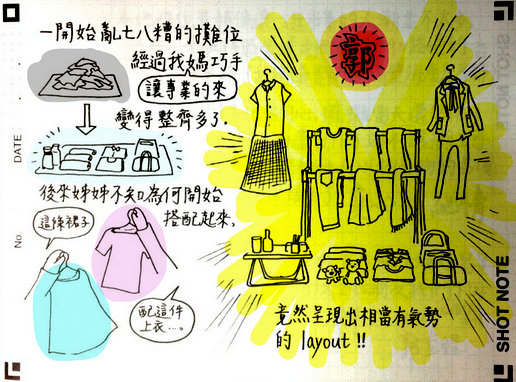 一開始亂七八糟的攤位
經過我媽巧手
讓專業的來
變得整齊多了.
後來姊姊不知為何開始
搭配起來,
這條裙子
配這件
上衣...。
郭
竟然呈現出相當有氣勢
的 layout !!
DATE
No.
SHOT NOTE